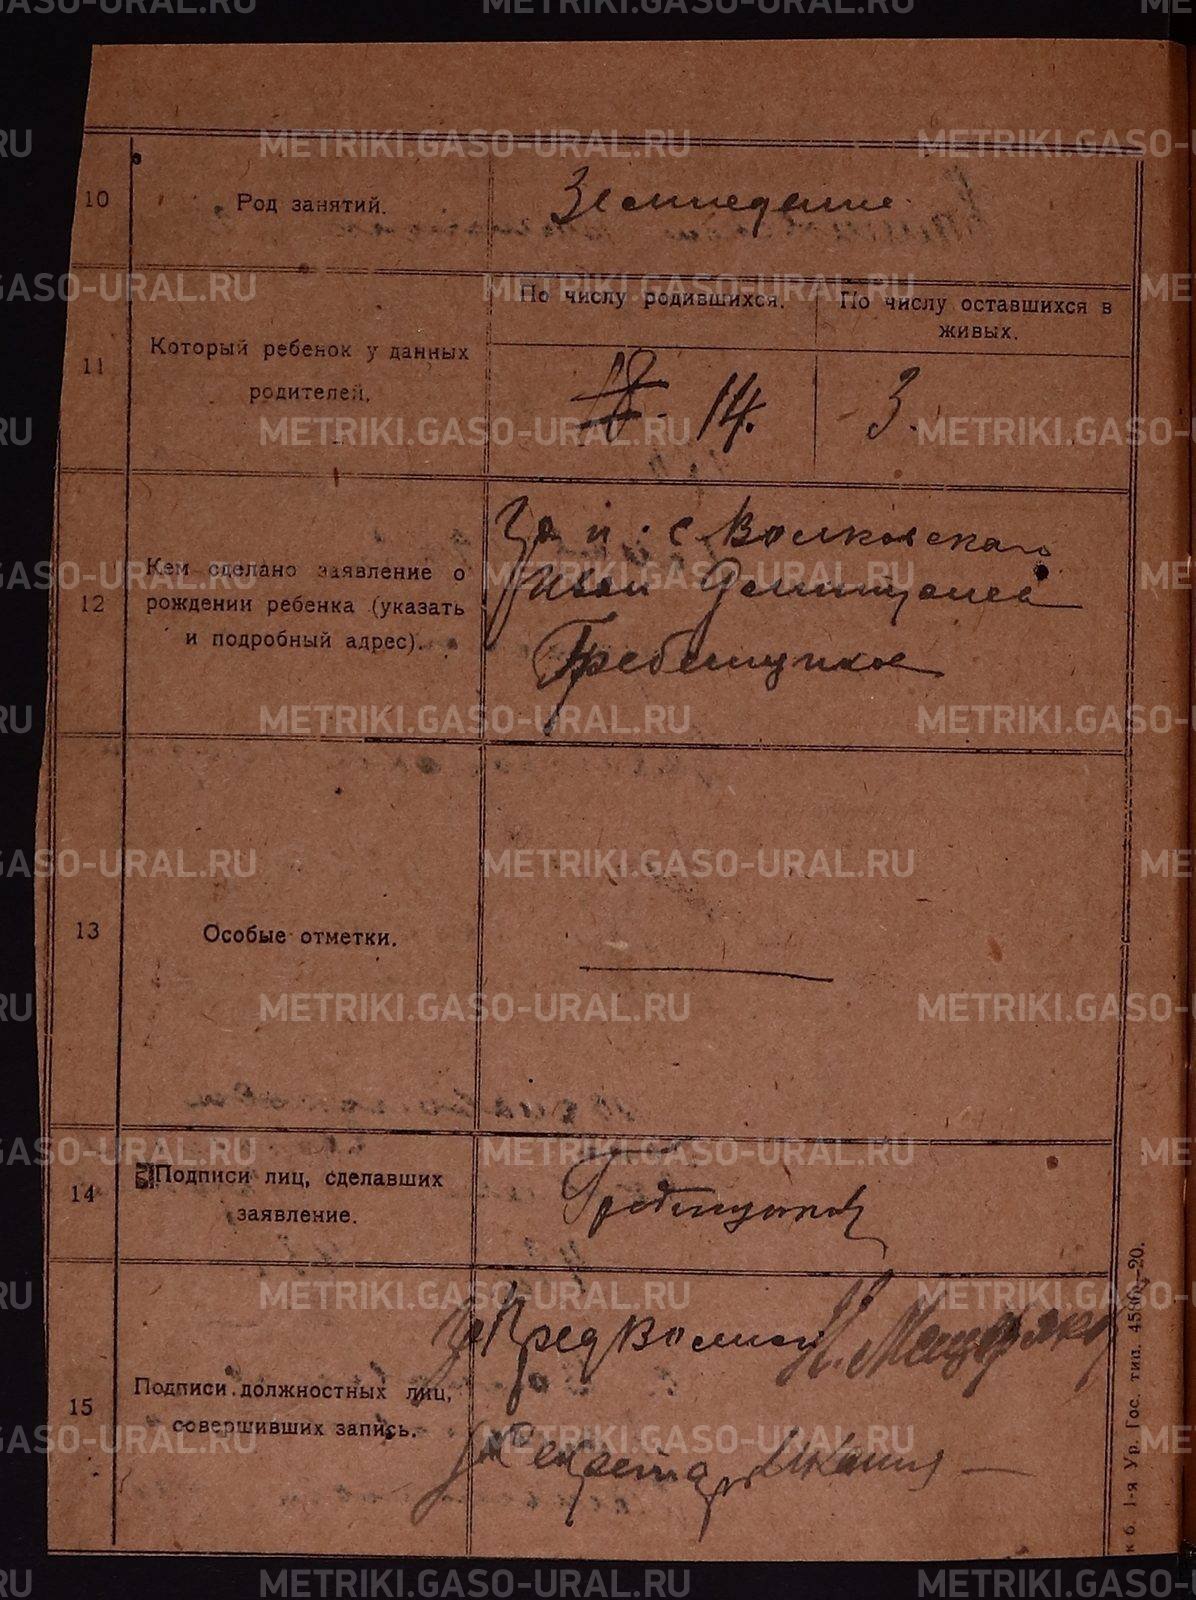 10
Род занятий.
Земледелие
11
Который ребенок у данных
родителей.
По числу родившихся.
По числу оставшихся в
живых.
18 - 14.
3.
12
Кем сделано заявление о
рождении ребенка (указать
и подробный адрес).
с Волковского
Иван
Гребенщиков
13
Особые отметки.
14
Подписи лиц, сделавших
заявление.
Гребенщиков
15
Подписи должностных лиц,
совершивших запись.
Пред
Н. Мещеряков
Секретарь
1-я Ур. Гос. тип.
METRIKI.GASO-URAL.RU